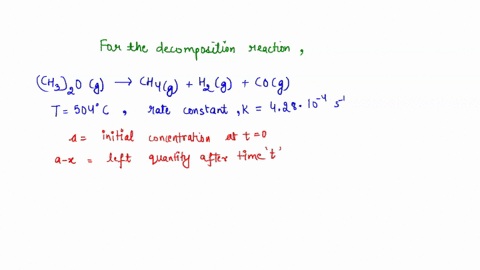 For the decomposition reaction ,
(CH3)2O (g) → CH4(g) + H2(g) + CO(g)
T = 504°C , rate constant , K = 4.28 · 10⁻⁴ s⁻¹
a = initial concentration at t=0
a-x = left quantity after time 't'